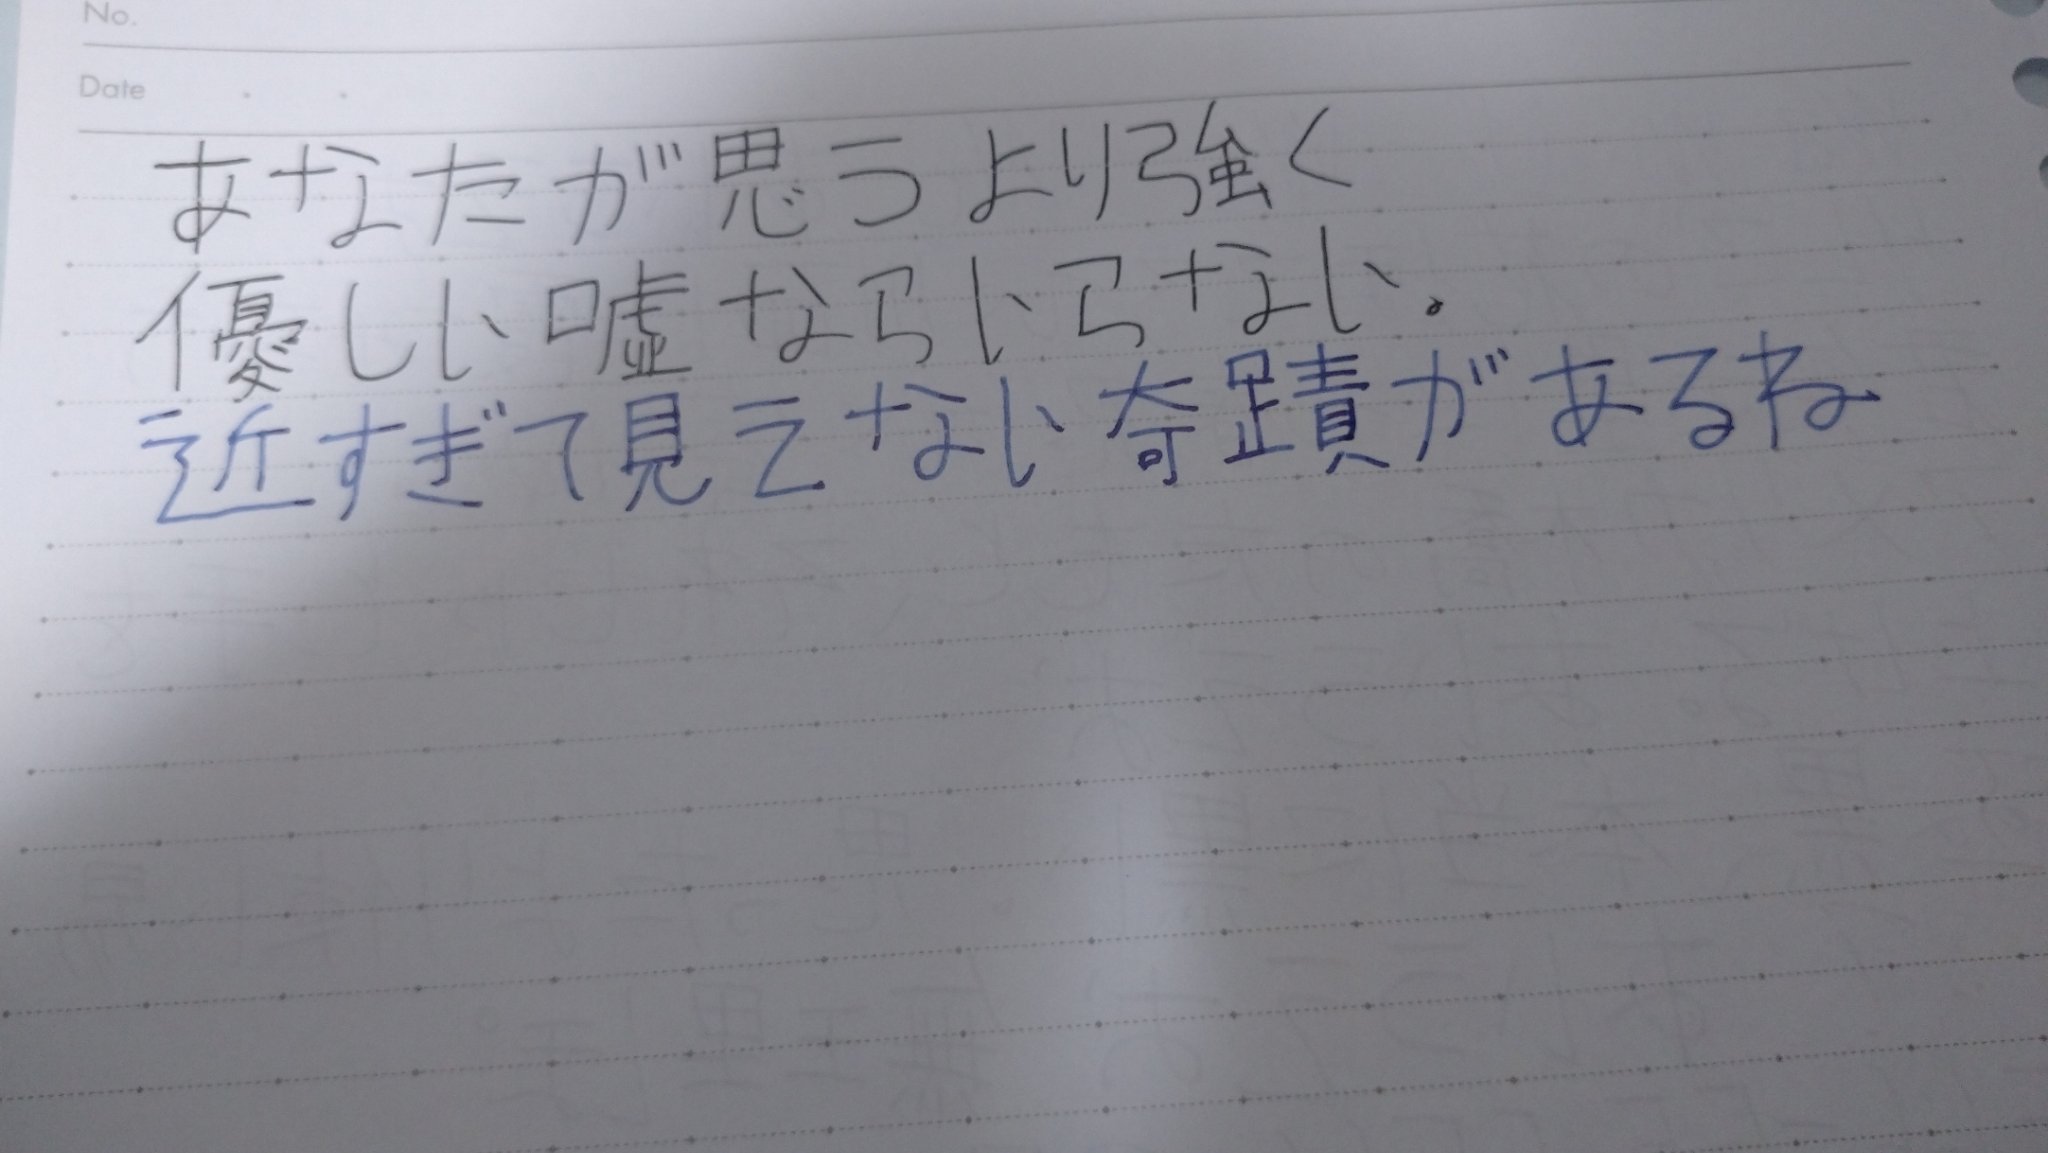 No.
Date
あなたが思うより強く
優しい嘘ならいらない。
近すぎて見えない奇蹟があるね